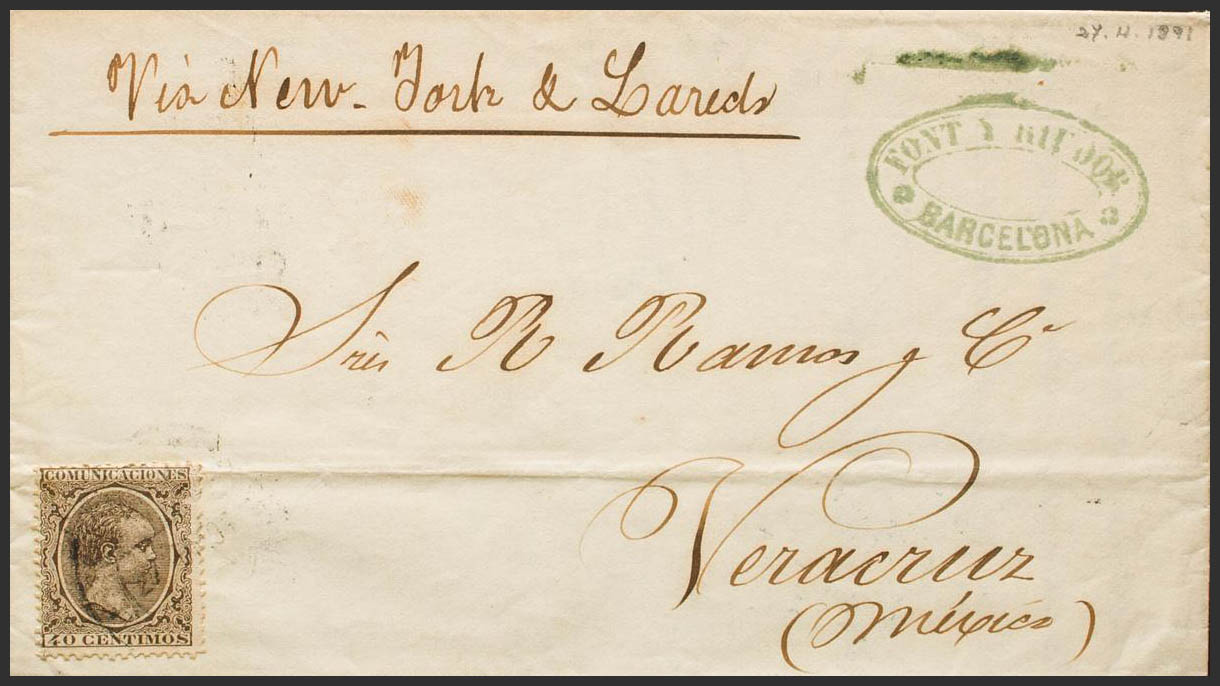 Via New-York & Laredo
FONT Y
BARCELONA
Srés R Ramos y Cª
Veracruz
(México)
COMUNICACIONES
40 CENTIMOS